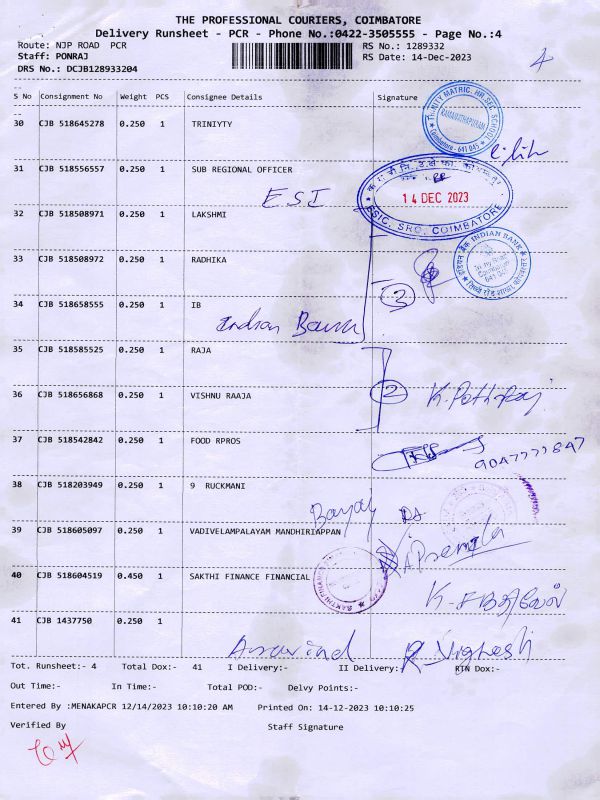 THE PROFESSIONAL COURIERS, COIMBATORE
Delivery Runsheet - PCR - Phone No.:0422-3505555 - Page No.:4
Route: NJP ROAD PCR
RS No.: 1289332
Staff: PONRAJ
RS Date: 14-Dec-2023
DRS No.: DCJB128933204
4
S No Consignment No Weight PCS Consignee Details Signature
30 CJB 518645278 0.250 1 TRINIYTY
TRINITY MATRIC. HR.SEC. SCHOOL
RAMANATHAPURAM
Coimbatore - 641 045
31 CJB 518556557 0.250 1 SUB REGIONAL OFFICER
ESI
14 DEC 2023
ESIC, SRO, COIMBATORE
32 CJB 518508971 0.250 1 LAKSHMI
33 CJB 518508972 0.250 1 RADHIKA
INDIAN BANK
3
34 CJB 518658555 0.250 1 IB
Indian Bank
35 CJB 518585525 0.250 1 RAJA
36 CJB 518656868 0.250 1 VISHNU RAAJA
2
37 CJB 518542842 0.250 1 FOOD RPROS
9047777847
38 CJB 518203949 0.250 1 9 RUCKMANI
Bajaj
39 CJB 518605097 0.250 1 VADIVELAMPALAYAM MANDHIRIAPPAN
A. Premila
40 CJB 518604519 0.450 1 SAKTHI FINANCE FINANCIAL
41 CJB 1437750 0.250 1
Aravind R. Vignesh
Tot. Runsheet:- 4 Total Dox:- 41 I Delivery:- II Delivery:- RTN Dox:-
Out Time:- In Time:- Total POD:- Delvy Points:-
Entered By :MENAKAPCR 12/14/2023 10:10:20 AM Printed On: 14-12-2023 10:10:25
Verified By Staff Signature